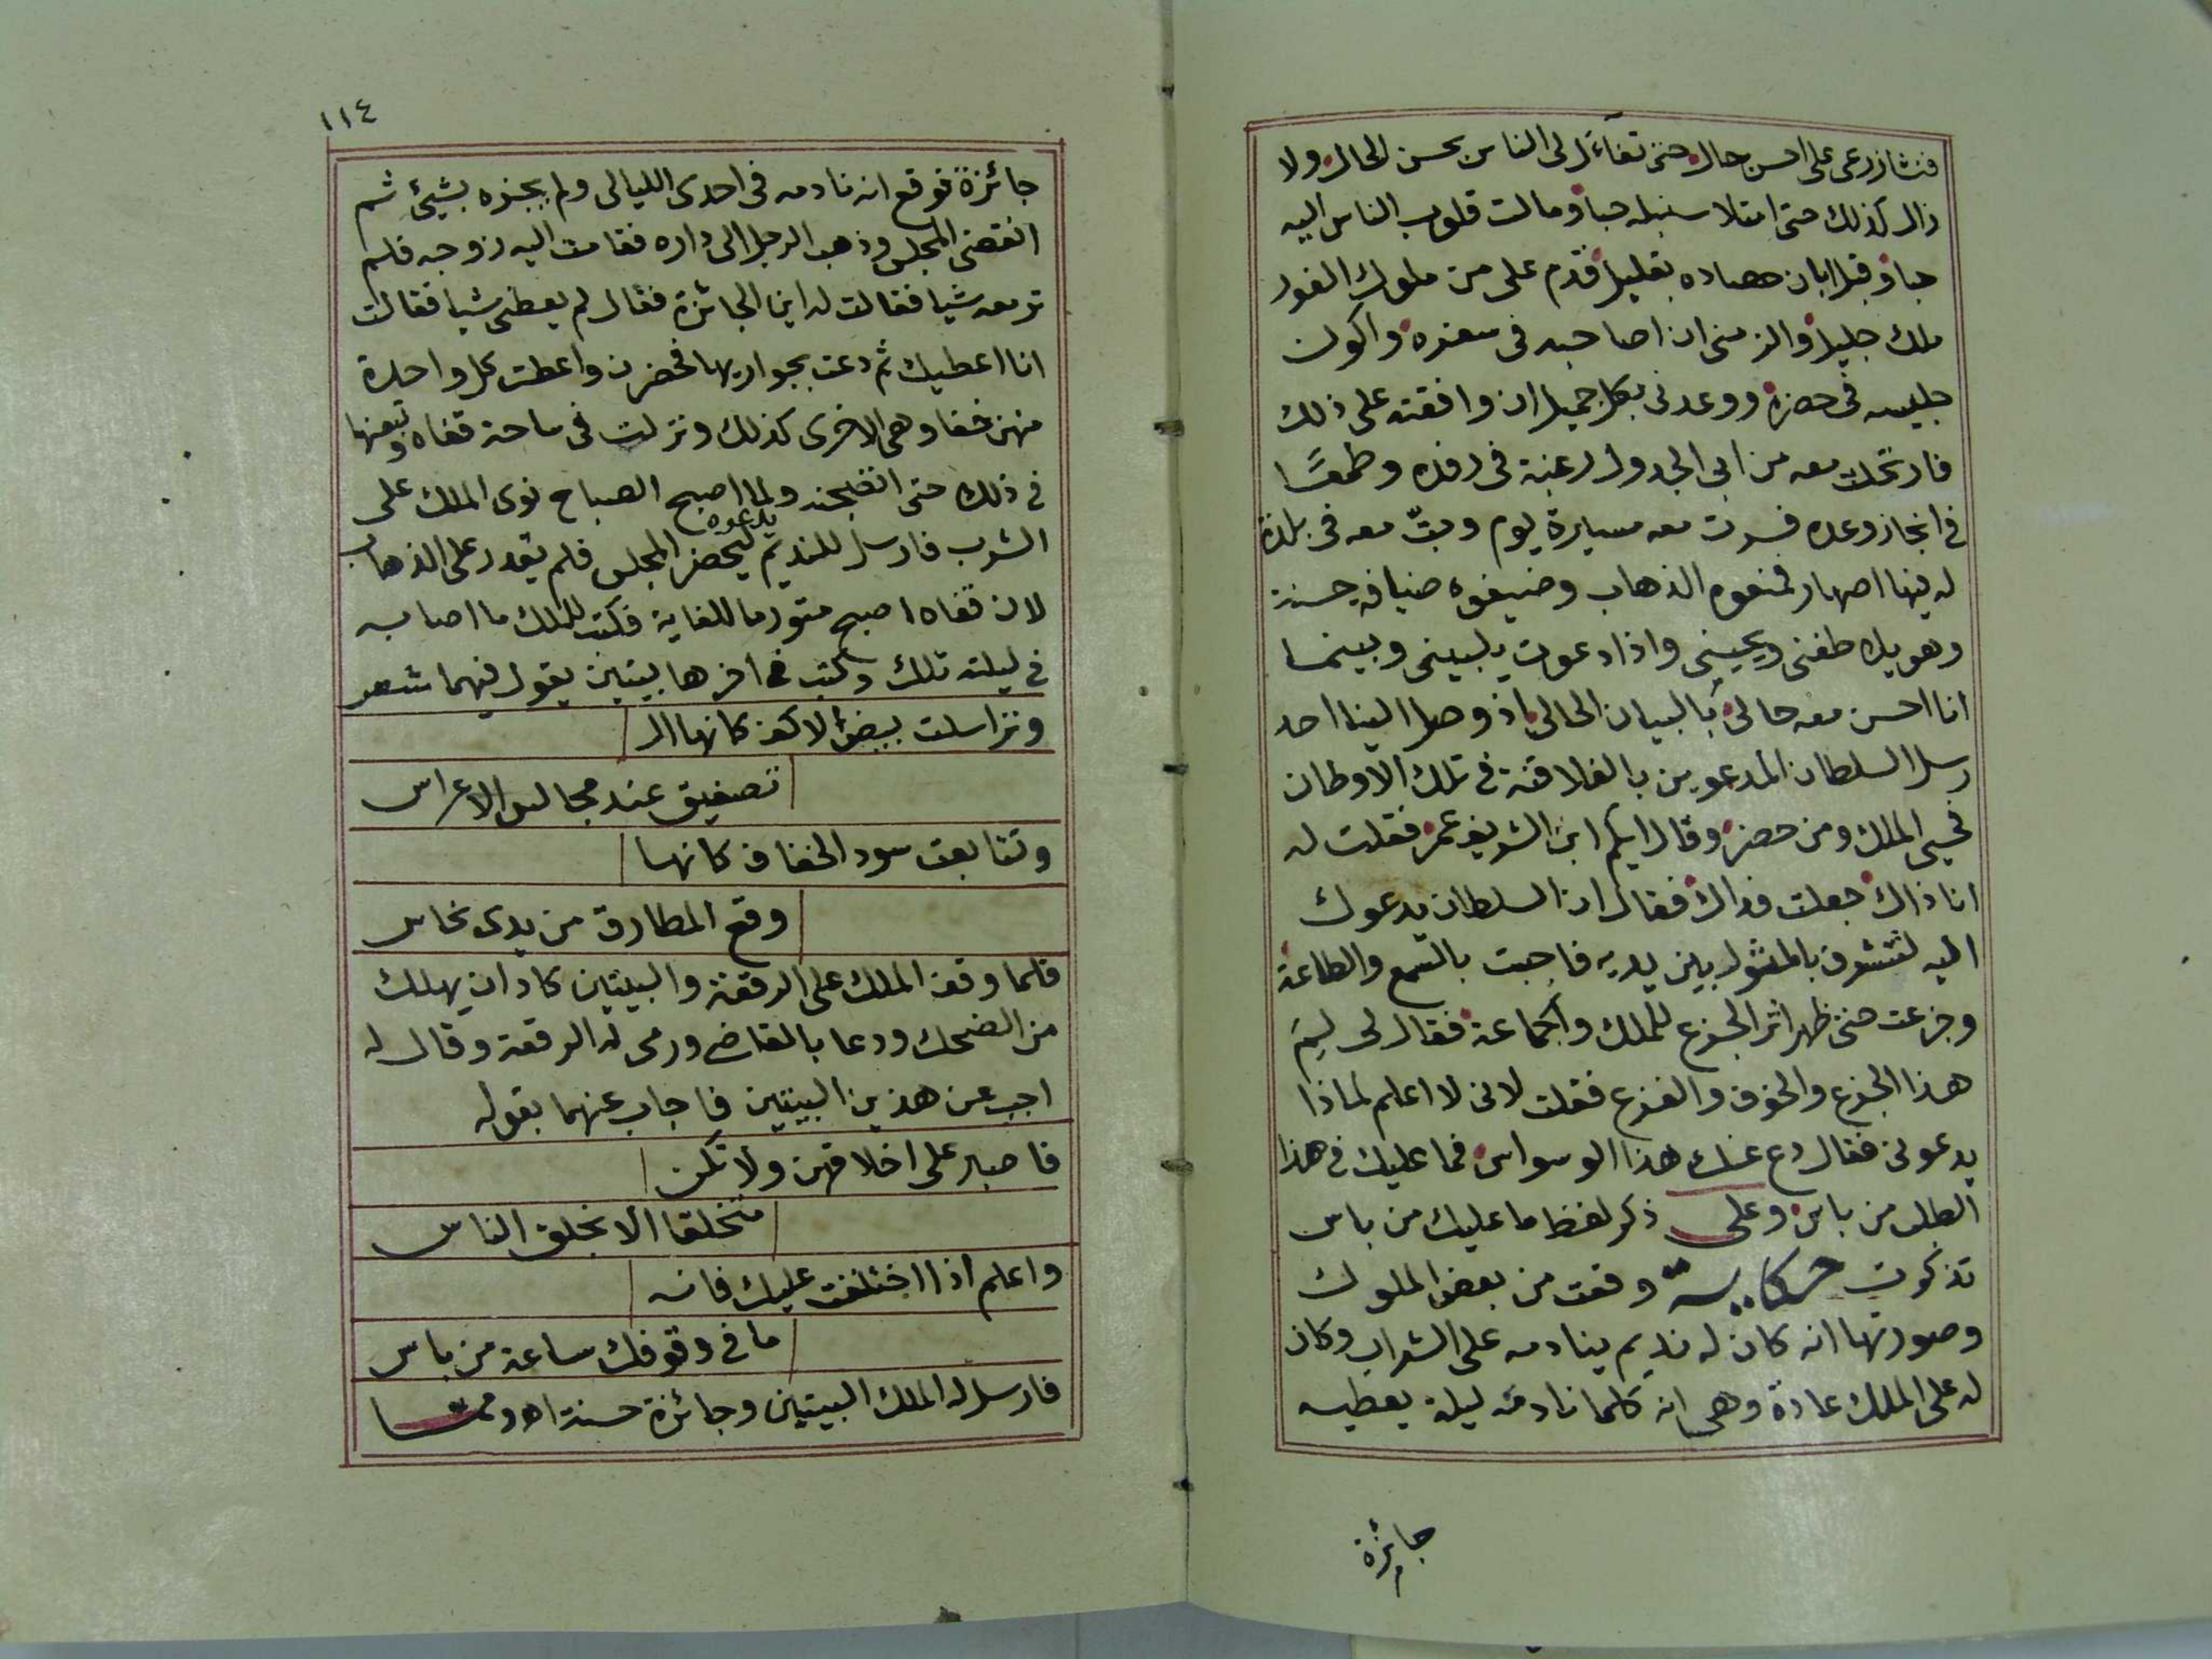 فنشا زرعى على احسن حال حتى تفاءل لى الناس بحسن الحال ولا
زال كذلك حتى امتلا سنبله حبا ومالت قلوب الناس اليه
حبا وقبل ابان حصاده بقليل قدم على من ملوك الفور
ملك جليل والزمنى ان اصاحبه فى سفره واكون
جليسه فى حضره ووعدنى بكل جميل ان وافقته على ذلك
فارتحلت معه من ابى الجدول رغبة فى رفده وطمعًا
فى انجاز وعده فسرت معه مسايرة يوم وبتّ معه فى بلدة
له فيها اصهار فمنعوه الذهاب وضيفوه ضيافة حسنة
وهو يلاطفنى ويحيينى واذا دعوت يلبينى وبينما
انا احسن معه حالى بالبيان الحالى اذ وصل الينا احد
رسل السلطان المدعوين بالفلاقنة فى تلك الاوطان
فحيى الملك ومن حضر وقال ايكم ابن الشريف عمر فقلت له
انا ذاك جعلت فداك فقال ان السلطان يدعوك
اليه لتتشرف بالمثول بين يديه فاجبت بالسمع والطاعة
وجزعت حتى ظهر اثر الجزع للملك والجماعة فقال لى لِمَ
هذا الجزع والخوف والفزع فقلت لانى لا اعلم لماذا
يدعونى فقال دع عنك هذا الوسواس فما عليك فى هذا
الطلب من باس وعلى ذكر لفظ ما عليك من باس
تذكرت حكاية وقعت من بعض الملوك
وصورتها انه كان له نديم ينادمه على الشراب وكان
له على الملك عادة وهى انه كلما نادمه ليلة يعطيه
جائزة
١١٤
جائزة فوقع انه نادمه فى احدى الليالى ولم يجزه بشيئ ثم
انقضى المجلس وذهب الرجل الى داره فقامت اليه زوجه فلم
تر معه شيا فقالت له اين الجائزة فقال لم يعطنى شيا فقالت
انا اعطيك ثم دعت بجواريها فحضرن واعطت كل واحدة
منهن خفا وهى الاخرى كذلك ونزلت فى ساحة قفاه وتبعنها
فى ذلك حتى ولما اصبح الصباح نوى الملك على
الشرب فارسل للنديم يدعوه ليحضر المجلس فلم يقدر على الذهاب
لان قفاه اصبح متورما للغاية فكتب للملك ما اصابه
فى ليلته تلك وكتب فى اخرها بيتين يقول فيهما شعر
وتراسلت بيض الاكف كانها ال
تصفيق عند مجالس الاعراس
وتتابعت سود الخفاف كانها
وقع المطارق من يدى نحاس
فلما وقف الملك على الرقعة والبيتين كاد ان يهلك
من الضحك ودعا بالقاضى ورمى له الرقعة وقال له
اجب عن هذين البيتين فاجاب عنهما بقوله
فاصبر على اخلاقهن ولا تكن
متخلقا الا بخلق الناس
واعلم اذا اختلفت عليك فانه
ما فى وقوفك ساعة من باس
فارسل له الملك البيتين وجائزة حسنة اه ومما